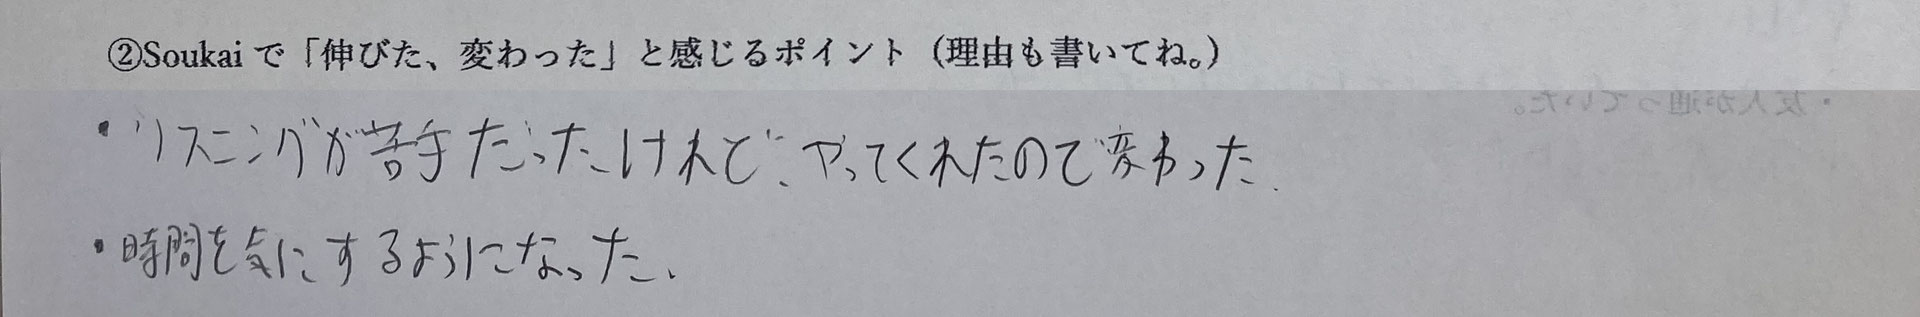 ②Soukaiで「伸びた、変わった」と感じるポイント（理由も書いてね。）
・リスニングが苦手だったけれど、やってくれたので変わった.
・時間を気にするようになった、
・友人が通っていた。